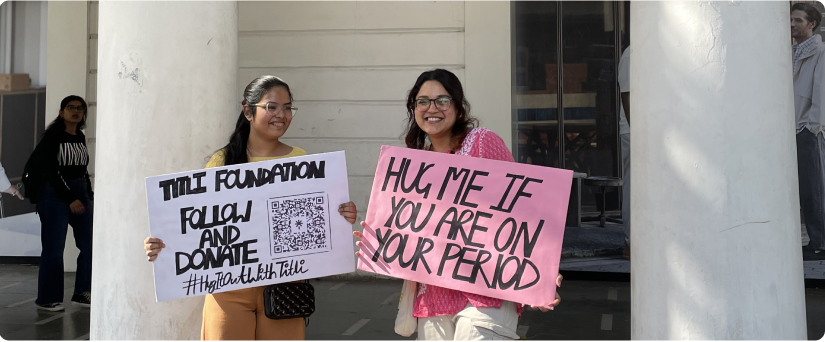 TITLI FOUNDATION
FOLLOW
AND
DONATE
#HugItOutWithTitli
HUG ME IF
YOU ARE ON
YOUR PERIOD